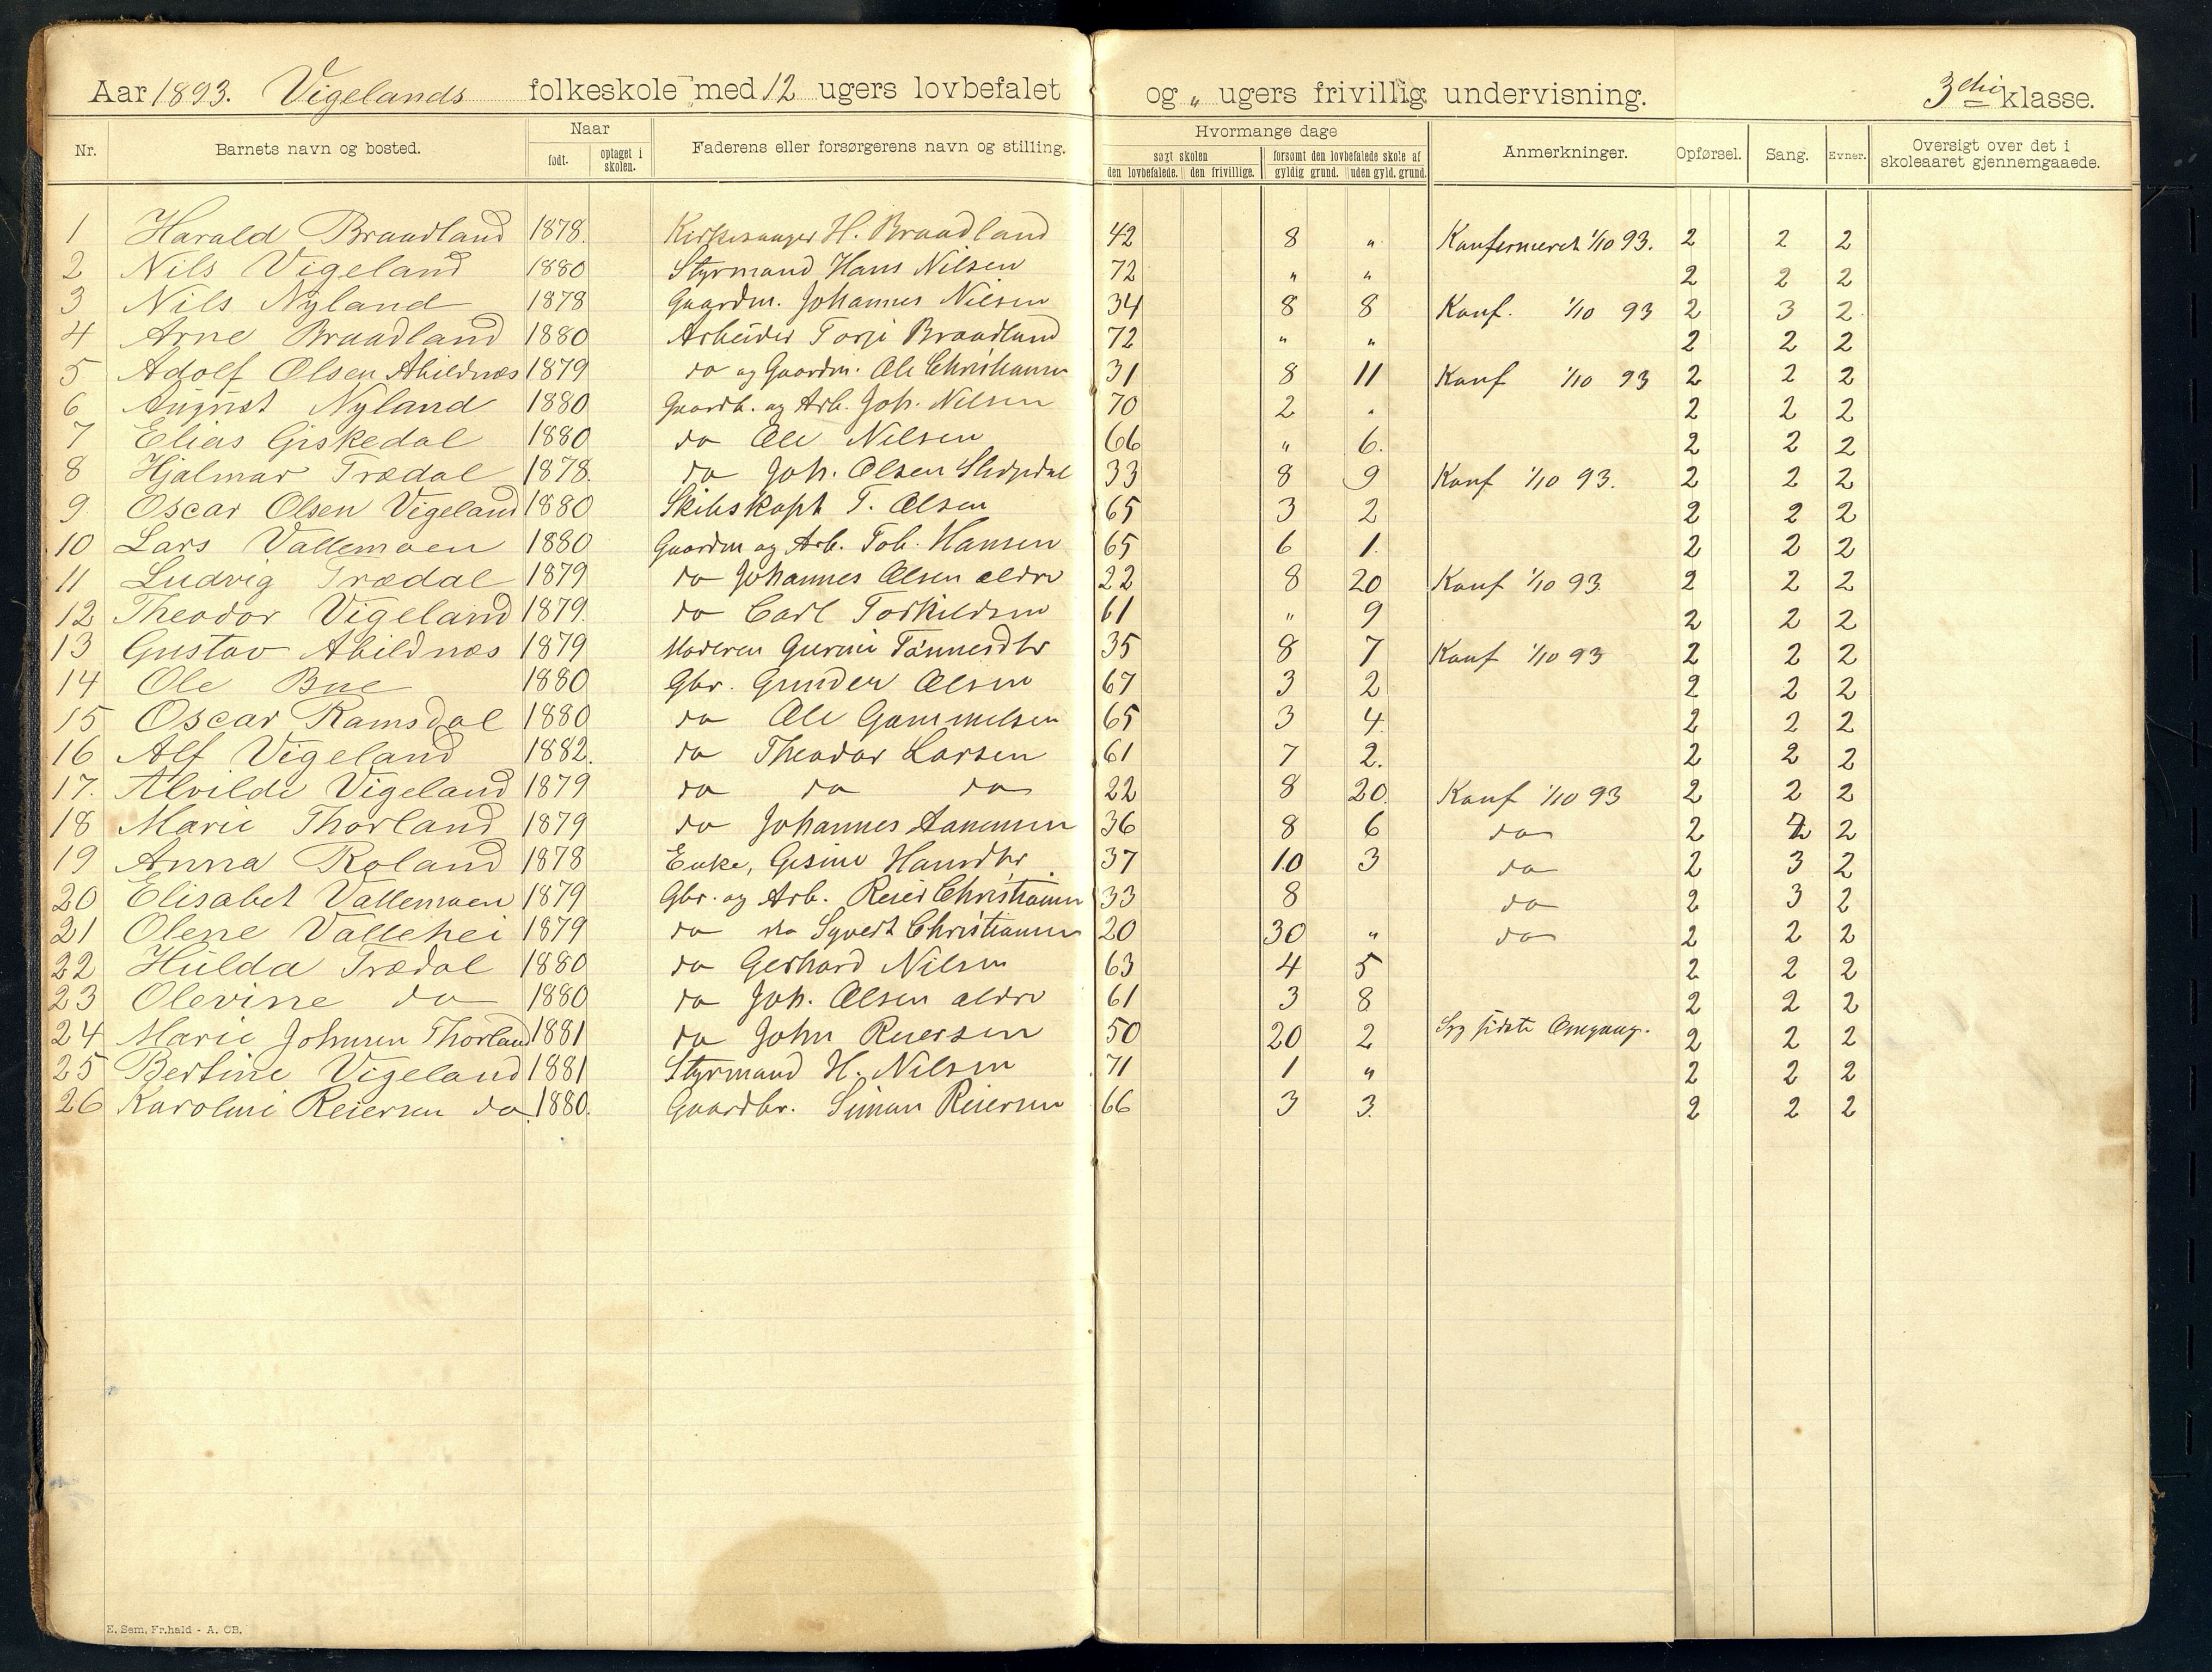 Aar 1893. Vigelands folkeskole med 12 ugers lovbefalet og „ ugers frivillig undervisning. 3die klasse.
Nr. Barnets navn og bosted. Naar født. optaget i skolen. Faderens eller forsørgerens navn og stilling. Hvormange dage søgt skolen den lovbefalede. den frivillige. forsømt den lovbefalede skole af gyldig grund. uden gyld. grund. Anmerkninger. Opførsel. Sang. Evner. Oversigt over det i skoleaaret gjennemgaaede.
1 Harald Braadland 1878. Kirkesanger H. Braadland 42 8 „ Konfirmeret 1/10 93. 2 2 2
2 Nils Vigeland 1880 Styrmand Hans Nilsen 72 „ „ 2 2 2
3 Nils Nyland 1878 Gaardm. Johannes Nilsen 34 8 8 Konf. 1/10 93 2 3 2
4 Arne Braadland 1880 Arbeider Torje Braadland 72 „ „ 2 2 2
5 Adolf Olsen Abildnæs 1879 do og Gaardm. Ole Christiansen 31 8 11 Konf 1/10 93 2 2 2
6 August Nyland 1880 Gaardb. og Arb. Joh. Nilsen 70 2 . 2 2 2
7 Elias Giskedal 1880 do Ole Nilsen 66 „ 6. 2 2 2
8 Hjalmar Trædal 1878. do Joh. Olsen 33 8 9 Konf 1/10 93. 2 2 2
9. Oscar Olsen Vigeland 1880 Skibskapt T. Olsen 65 3 2 2 2 2
10 Lars Vallemoen 1880 Gaardm og Arb. Tob. Hansen 65 6 1. 2 2 2
11 Ludvig Trædal 1879 do Johannes Olsen ældre 22 8 20 Konf 1/10 93. 2 2 2
12 Theodor Vigeland 1879. do Carl Torkildsen 61 „ 9 2 2 2
13 Gustav Abildnæs 1879 Moderen Gurine Tønnesdtr 35 8 7 Konf 1/10 93 2 2 2
14 Ole Bue 1880 Gbr. Gunder Olsen 67 3 2 2 2 2
15 Oscar Ramsdal 1880 do Ole Gammelsen 65 3 4. 2 2 2
16 Alf Vigeland 1882. do Theodor Larsen 61 7 2. 2 2 2
17. Alvilde Vigeland 1879 do do do 22 8 20. Konf 1/10 93 2 2 2
18 Marie Thorland 1879 do Johannes Aanensen 36 8 6 do 2 2 2
19 Anna Roland 1878 Enke, Gesine Hansdtr. 37 10 3 do 2 3 2
20 Elisabet Vallemoen 1879 Gbr. og Arb. Reier Christiansen 33 8 do 2 3 2
21 Olene Vallehei 1879 do do Syvert Christiansen 20 30 „ do 2 2 2
22 Hulda Trædal 1880 do Gerhard Nilsen 63 4 5 2 2 2
23 Olevine do 1880 do Joh. Olsen ældre 61 3 8 2 2 2
24 Marie Johnsen Thorland 1881 do John Reiersen 50 20 2 Syg sidste Omgang. 2 2 2
25 Bertine Vigeland 1881 Styrmand H. Nilsen 71 1 „ 2 2 2
26 Karoline Reiersen do. 1880. Gaardbr. Simon Reiersen 66 3 3. 2 2 2
E. Sem, Fr.hald - A. OB.